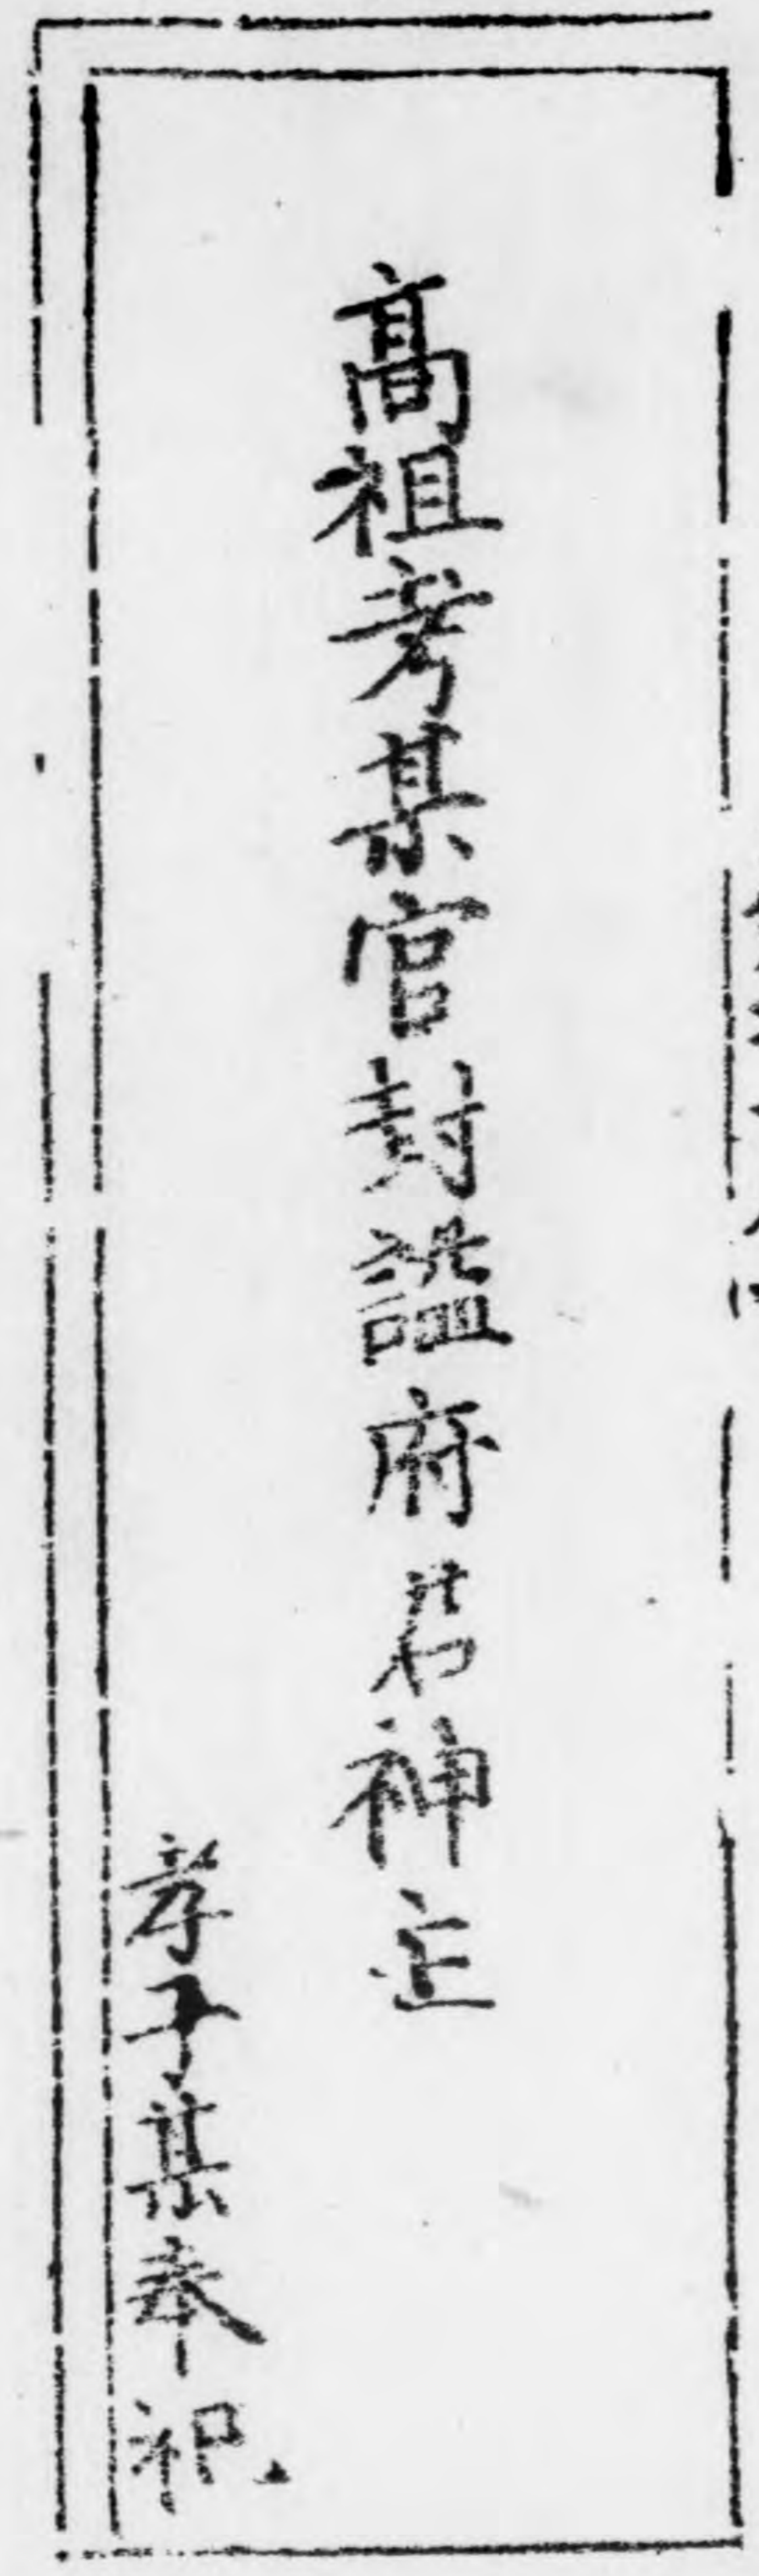 高祖考某官封諡府君神主
孝子某奉祀